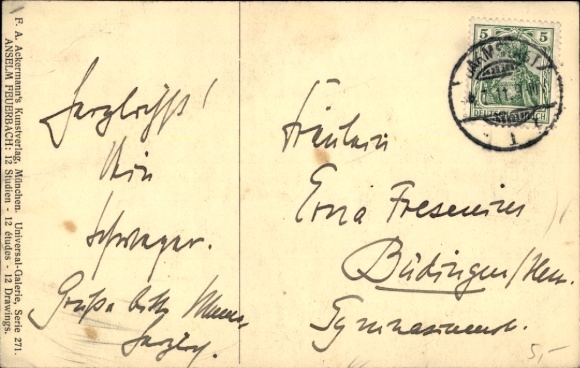 F. A. Ackermann's Kunstverlag, München. Universal-Galerie, Serie 271.
ANSELM FEUERBACH: 12 Studien - 12 études - 12 Drawings.
Herzlichst!
Dein
Schwager.
Grüße bitte
Herzlich.
5 5
DARMSTADT
1
Fräulein
Erna Fresenius
Büdingen/Hess.
5,-